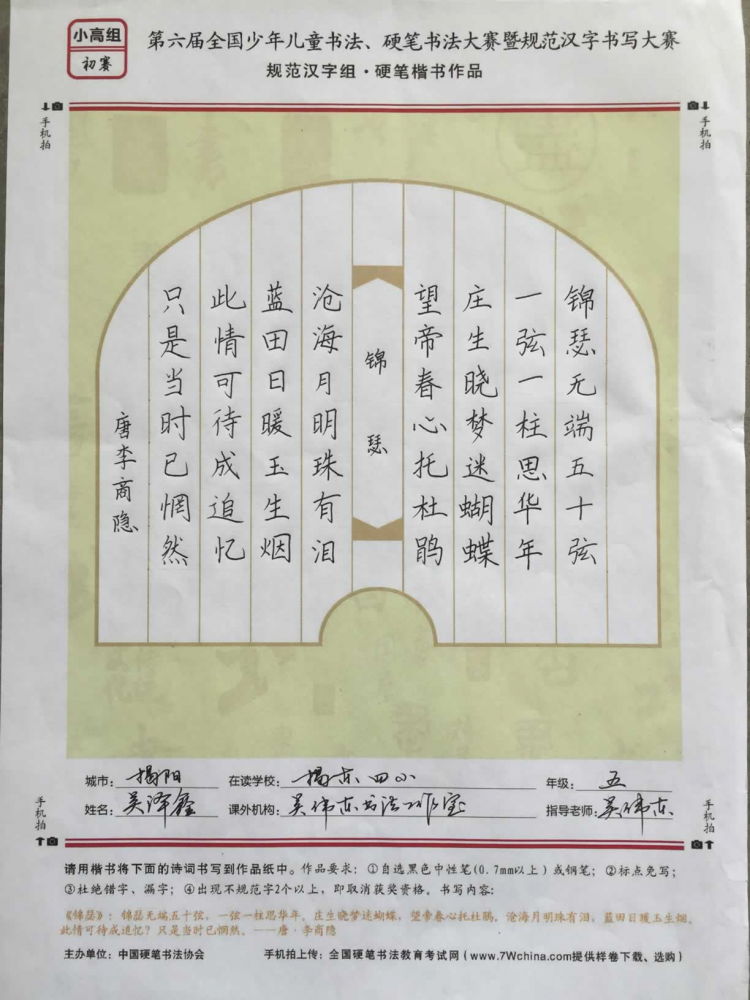 小高组
初赛
第六届全国少年儿童书法、硬笔书法大赛暨规范汉字书写大赛
规范汉字组·硬笔楷书作品
手机拍
手机拍
锦瑟无端五十弦
一弦一柱思华年
庄生晓梦迷蝴蝶
望帝春心托杜鹃
锦瑟
沧海月明珠有泪
蓝田日暖玉生烟
此情可待成追忆
只是当时已惘然
唐李商隐
城市：揭阳 在读学校：揭东四小 年级：五
姓名：吴泽鑫 课外机构：吴伟东书法工作室 指导老师：吴伟东
手机拍
手机拍
请用楷书将下面的诗词书写到作品纸中。作品要求：①自选黑色中性笔(0.7mm以上)或钢笔；②标点免写；
③杜绝错字、漏字；④出现不规范字2个以上，即取消获奖资格。书写内容：
《锦瑟》：锦瑟无端五十弦，一弦一柱思华年。庄生晓梦迷蝴蝶，望帝春心托杜鹃。沧海月明珠有泪，蓝田日暖玉生烟。
此情可待成追忆？只是当时已惘然。——唐·李商隐
主办单位：中国硬笔书法协会 手机拍上传：全国硬笔书法教育考试网（www.7Wchina.com提供样卷下载、选购）